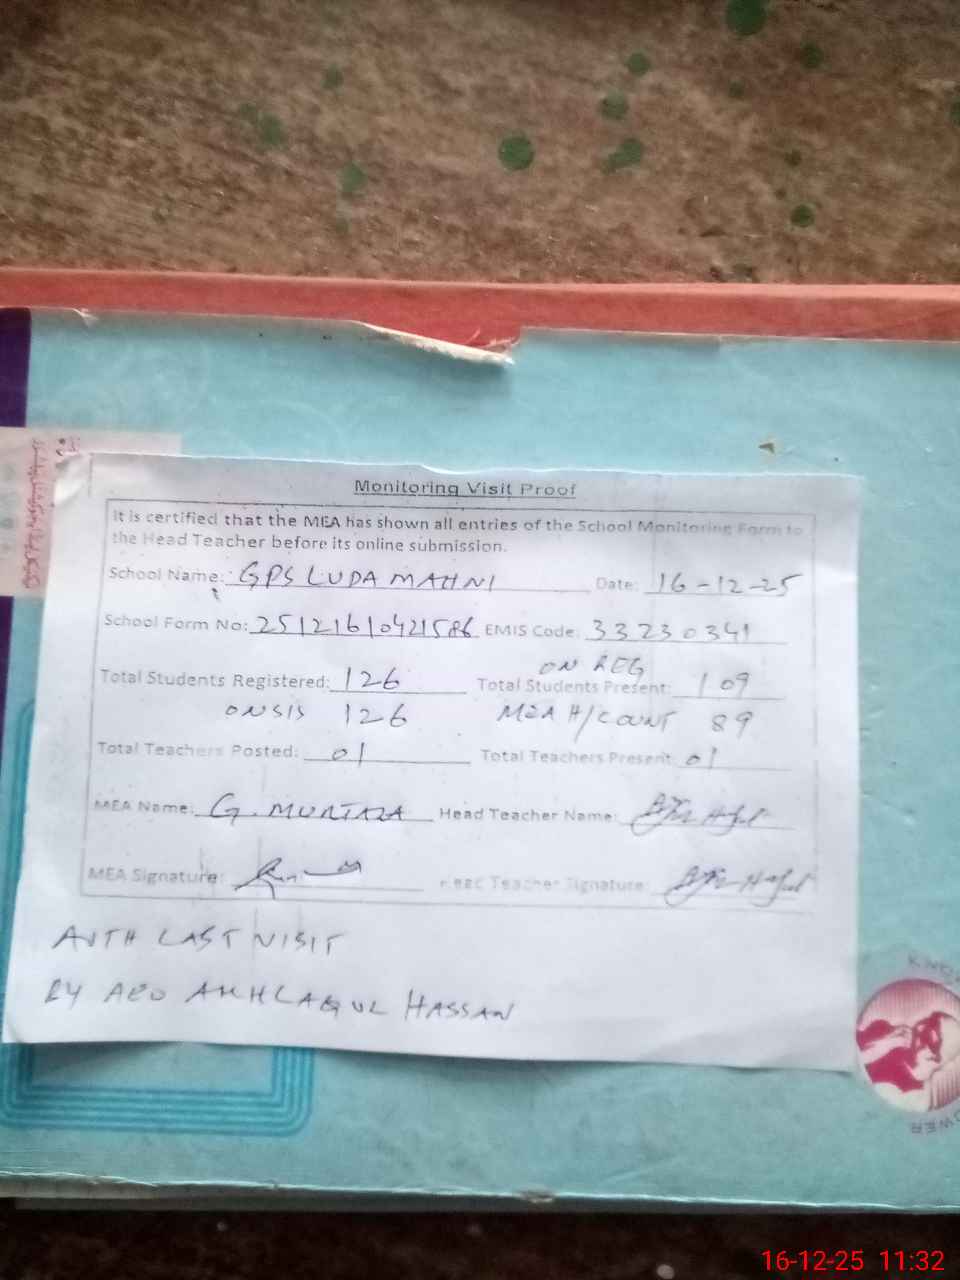 Monitoring Visit Proof
It is certified that the MEA has shown all entries of the School Monitoring Form to
the Head Teacher before its online submission.
School Name: GPS LUDA MAHNI Date: 16-12-25
School Form No: 25121610421586 EMIS Code: 33230341
ON REG
Total Students Registered: 126 Total Students Present: 109
ONSIS 126 MEA H/COUNT 89
Total Teachers Posted: 01 Total Teachers Present: 01
MEA Name: G. MURTAZA Head Teacher Name:
MEA Signature: Head Teacher Signature:
AUTH LAST VISIT
BY AEO AKHLAQUL HASSAN
16-12-25 11:32